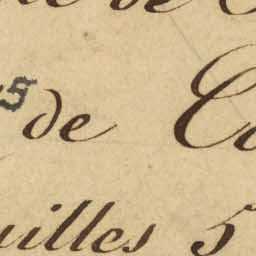 de
5 de Co
uilles 5